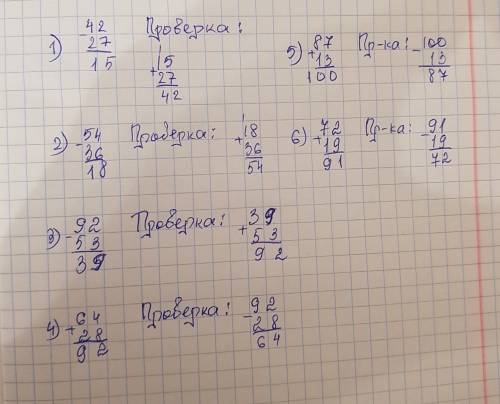 1) -42 Проверка:
27
15
1
+15
27
42
2) -54 Проверка: 1
36 +18
18 36
54
3) -92 Проверка: +39
53 53
39 92
4) +64 Проверка: -92
28 28
92 64
5) +87 Пр-ка: -100
13 13
100 87
6) +72 Пр-ка: -91
19 19
91 72